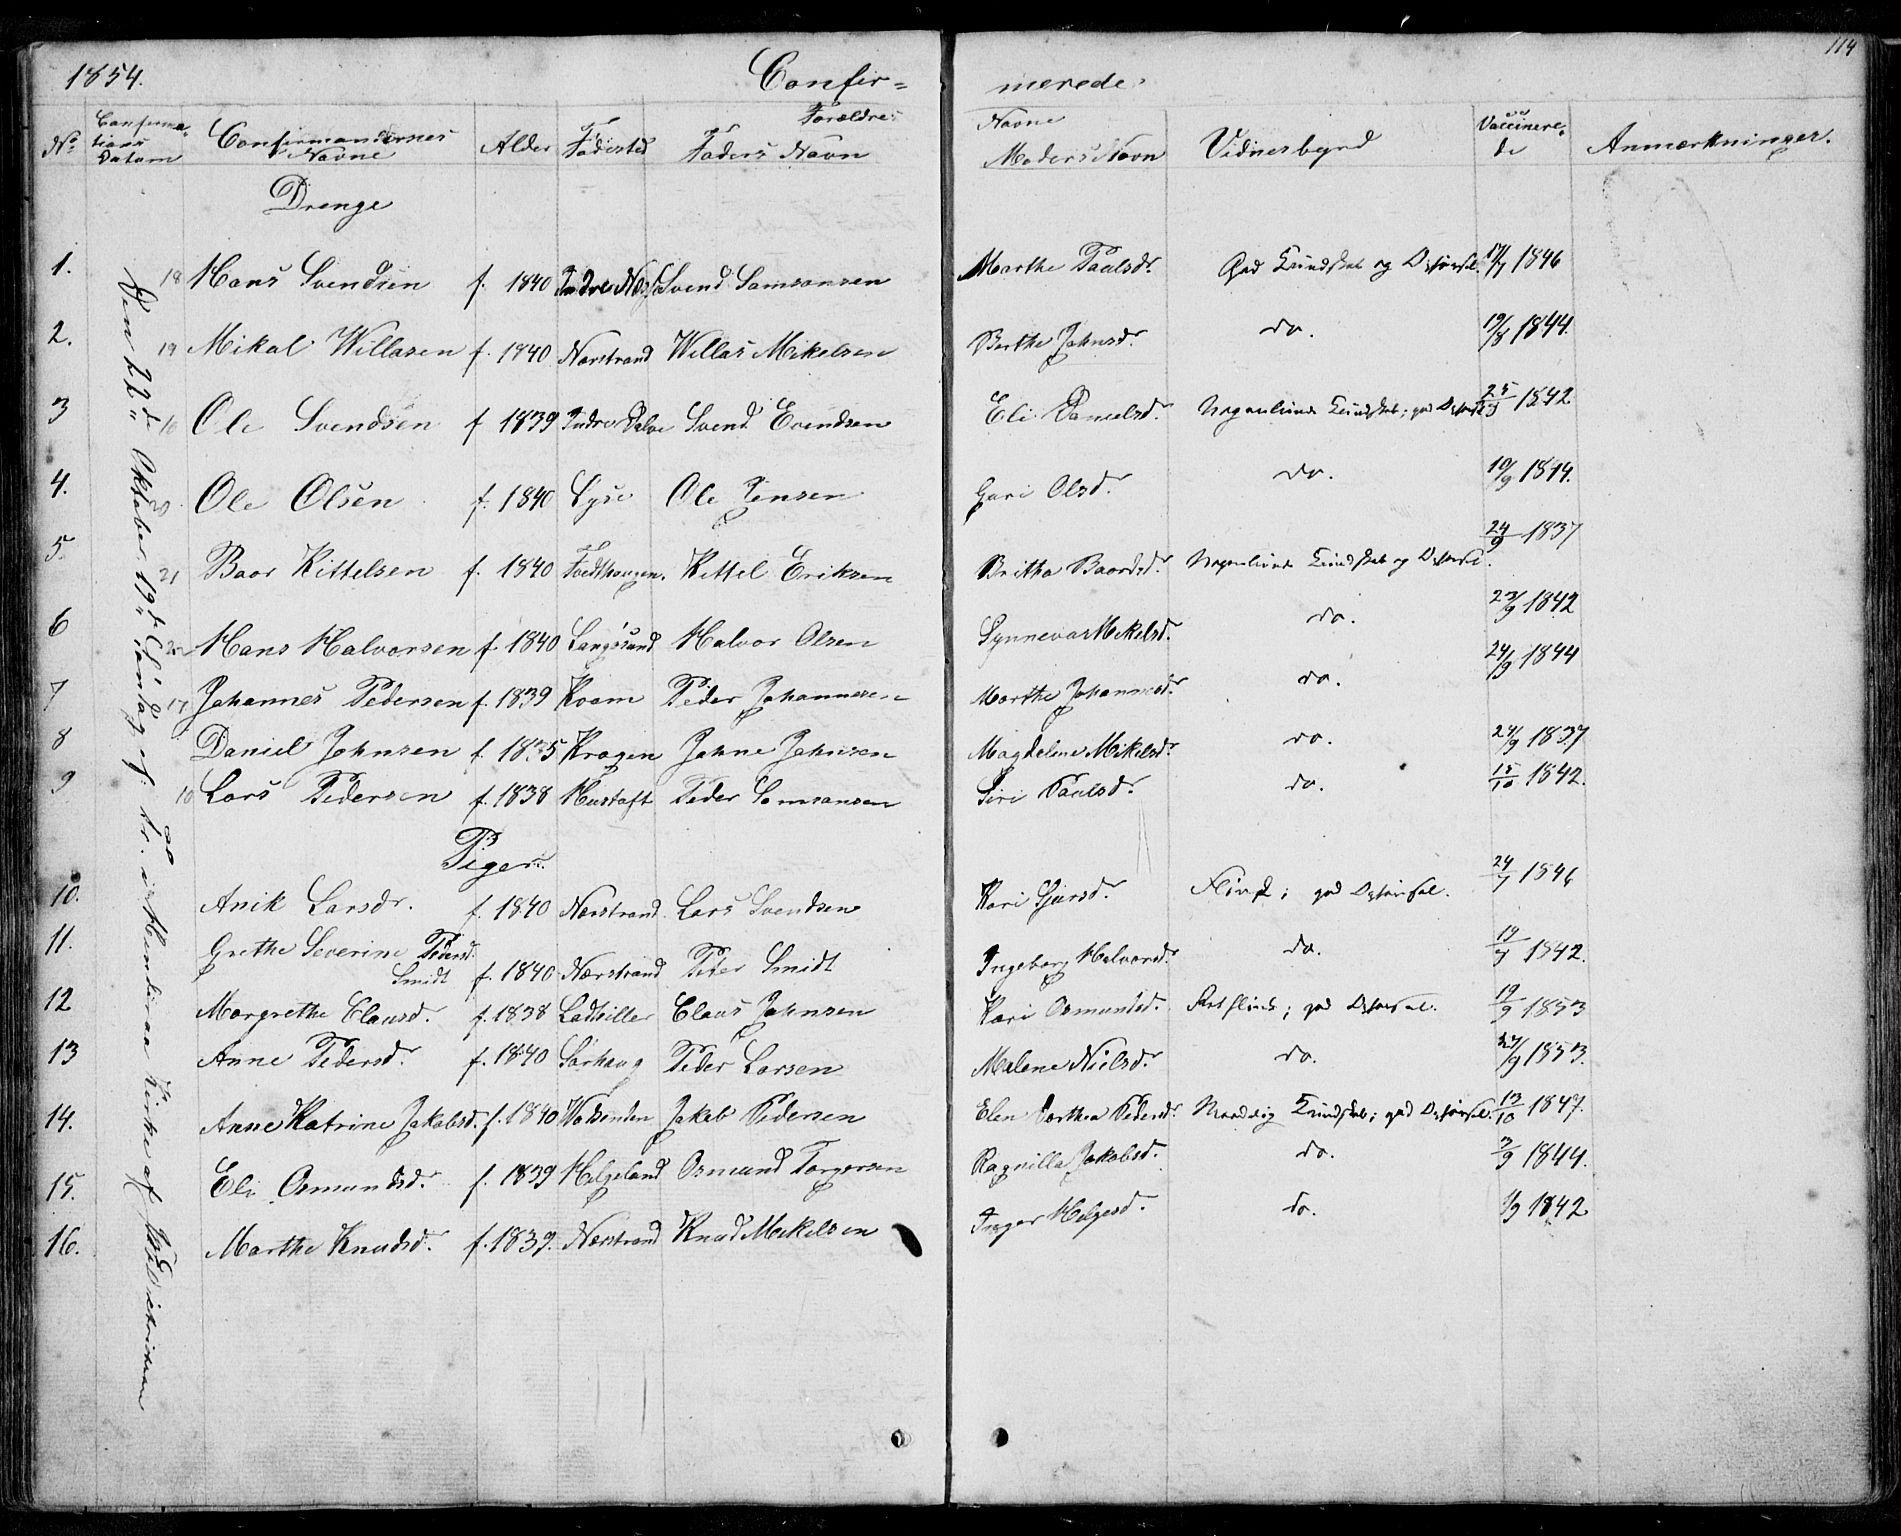 114
1854. Confir= merede.
No Confirma-tions Datum Confirmandernes Navne Alder Födested Forældre: Faders Navn Navne Moders Navn Vidnesbyrd Vaccinere-de Anmærkninger.
Drenge
Den 22de Oktober, 19de Söndag ef. Tr. i Kirke af
1. 18 Hans Svendsen f. 1840 Indre Næs Svend Samsonsen Marthe Paulsdr. God Kundskab og Opförsel. 17/7 1846
2. 19 Mikal Willasen f. 1840 Nærstrand Willas Mikelsen Berthe Johnsdr. do. 19/8 1844.
3 16 Ole Svendsen f 1839 Indre Svend Evendsen Eli Danielsdr. Nogenlunde Kundskab; god Opförsel 25/9 1842
4. 20 Ole Olsen f. 1840 Lyse Ole Jensen Guri Olsdr. do. 10/9 1844.
5. 21 Baar Kittelsen f. 1840 Kittel Eriksen Britha Baardsdr. Nogenlunde Kundskab og Opförsel. 24/9 1837
6 22 Hans Halvorsen f. 1840 Langösund Halvor Olsen Synneva Mikelsdr. do. 23/9 1842
7 17 Johannes Pedersen f. 1839 Kvam Peder Johannesen Marthe Johannesdr. do. 24/9 1844
8 Daniel Johnsen f. 1835 Kragen Johne Johnsen Magdelene Mikelsdr. do. 24/9 1837
9 10 Lars Pedersen f. 1838 Hustoft Peder Samsonsen Siri Paulsdr. do. 15/10 1842.
Piger.
10. Anik Larsdr. f. 1840 Nærstrand Lars Svendsen Kari god Opförsel. 24/7 1846
11. Grethe Severine Pedersd. Smidt f. 1840 Nærstrand Peder Smidt Ingeborg Halvorsdr. do. 1842.
12 Margrethe Clausd. f. 1838 Claus Johnsen Kari Osmundsd. god Opförsel. 19/9 1853
13 Anne Pedersd. f. 1840 Sörhaug Peder Larsen Malene Nielsdr. do. 1853.
14. Anne Katrine Jakobsd. f. 1840 Vadsenden Jakob Pedersen Elen Dorthea Pedersdr. Maadelig Kundskab; god Opförsel. 13/10 1847.
15. Eli Osmundsd. f. 1839 Helgeland Osmund Torgersen Ragnilla Jakobsd. do. 3/9 1844.
16. Marthe Knudsd. f. 1839. Nærstrand Knud Mikelsen Inger Helgesd. do. 1/9 1842